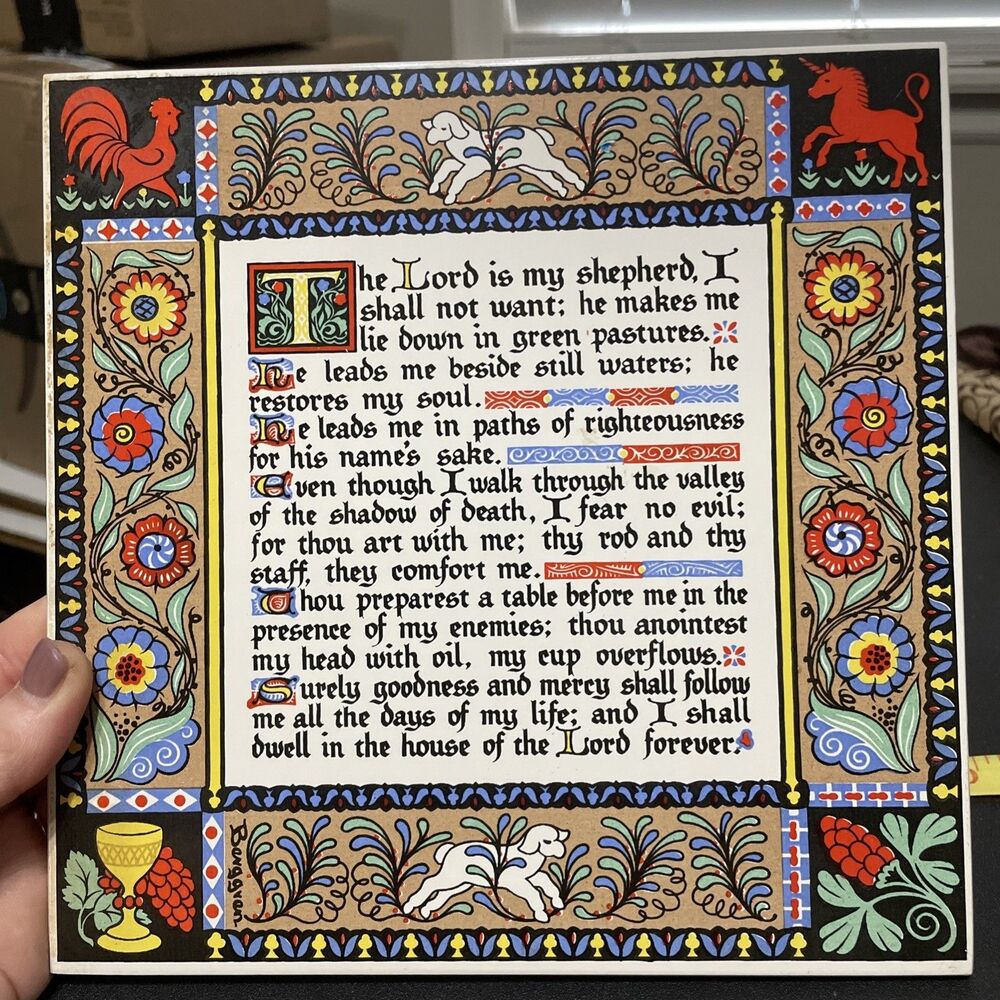 The Lord is my shepherd, I
shall not want; he makes me
lie down in green pastures.
He leads me beside still waters; he
restores my soul.
He leads me in paths of righteousness
for his name's sake.
Even though I walk through the valley
of the shadow of death, I fear no evil;
for thou art with me; thy rod and thy
staff, they comfort me.
Thou preparest a table before me in the
presence of my enemies; thou anointest
my head with oil, my cup overflows.
Surely goodness and mercy shall follow
me all the days of my life; and I shall
dwell in the house of the Lord forever.